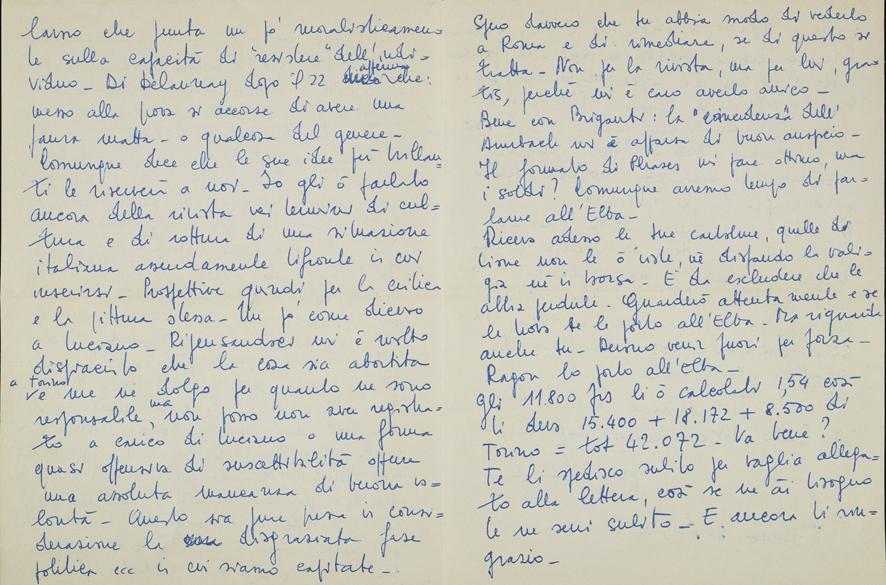 larno che punta un pò moralisticamen=
te sulla capacità di "resistere" dell'indi=
viduo - Di Delaunay dopo il 22 afferma che:
messo alla prova si accorse di avere una
paura matta - o qualcosa del genere -
Comunque dice che le sue idee più brillan=
ti le riserverà a noi - Io gli ò parlato
ancora della rivista nei termini di cul=
tura e di rottura di una situazione
italiana assurdamente bifronte in cui
inserirsi - Prospettive quindi per la critica
e la pittura stessa - Un pò come dicevo
a Luciano - Ripensandoci mi è molto
dispiaciuto che la cosa sia abortita
a Torino
e me ne dolgo per quanto ne sono
responsabile, ma non posso non aver registra=
to a carico di Luciano o una forma
quasi offensiva di suscettibilità oppure
una assoluta mancanza di buona vo=
lontà - Questo sia pure presa in consi=
derazione la disgraziata fase
politica ecc in cui siamo capitate -
Spero davvero che tu abbia modo di vederlo
a Roma e di rimediare, se di questo si
tratta - Non per la rivista, ma per lui, gra=
tis, perchè mi è caro averlo amico -
Bene con Briganti: la "coincidenza" dell'
Auerbach mi è apparsa di buon auspicio -
Il formato di Phases mi pare ottimo, ma
i soldi? Comunque avremo tempo di par=
larne all'Elba -
Ricevo adesso le tue cartoline, quelle di
Lione non le ò viste, nè disfando la vali=
gia nè in borsa - È da escludere che le
abbia perdute. Guarderò attentamente e se
le trovo te le porto all'Elba - Ma riguarda
anche tu - Devono venir fuori per forza -
Ragon lo porto all'Elba -
Gli 11.800 frs li ò calcolati 1,54 così
ti devo 15.400 + 18.172 + 8.500 di
Torino = tot 42.072 - Va bene?
Te li spedisco subito per vaglia allega=
to alla lettera, così se ne ài bisogno
te ne servi subito - E ancora ti rin=
grazio -